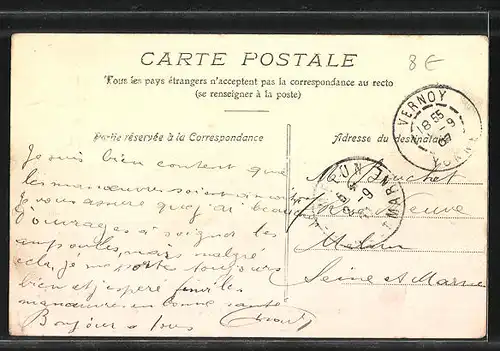 CARTE POSTALE
8€
Tous les pays étrangers n'acceptent pas la correspondance au recto
(se renseigner à la poste)
Partie réservée à la Correspondance
Adresse du destinataire
VERNOY
18 55
-9
07
YONNE
Je suis bien content que
les manœuvres soient
Je vous assure que j'ai beaucoup
d'ouvrages à soigner les
ampoules, mais malgré
cela, je me porte toujours
bien et j'espère finir les
manœuvres en bonne santé
Bonjour a tous
-9
MARNE
Rue Neuve
Melun
Seine et Marne